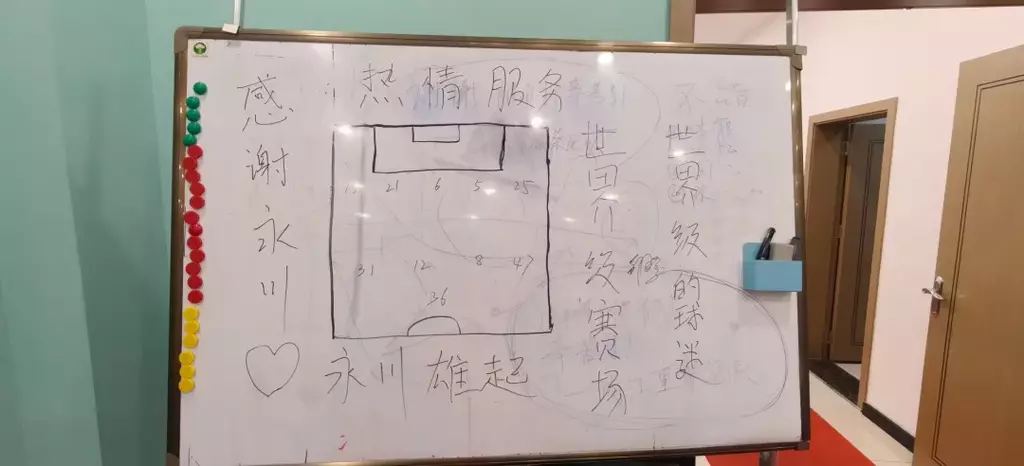 感谢永川
热情服务
13 21 6 5 25
31 12 8 47
36
永川雄起
世界级赛场
世界级的球迷